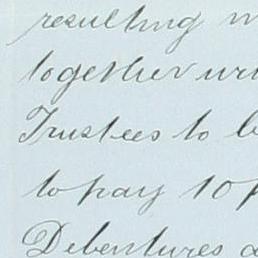 resulting
together
Trustees to
to pay 10
Debentures